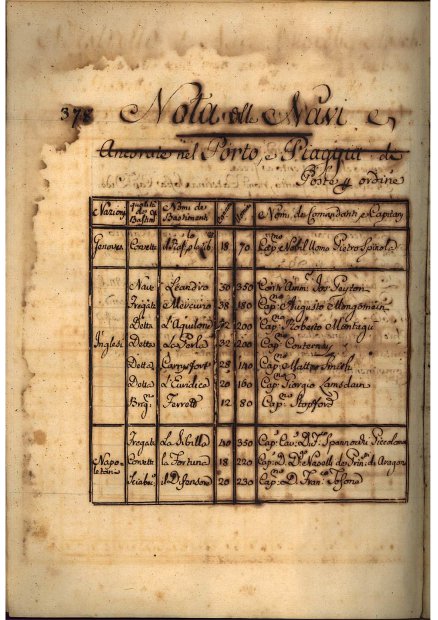 378 Nota delle Navi e
Ancorate nel Porto, e Piaggia de
Poste y ordine
Nazioni qualità de Bastim. Nomi de Bastimenti Nomi de Comandanti e Capitani
Genovesi Corvetta 18 70 Cap.no Nobil Uomo Pietro Spinola
Nave Leandro 50 350 Contr'Amm. Jos Peyton
Fregata Mercurio 38 180 Cap.no Augusto Mongomein
Detta L'Aquilone 32 200 Cap.no Roberto Montagu
Inglesi Detta La Perla 32 200 Cap.no Courtenay
Detta Carnesfort 28 140 Cap.no Matteo Smith
Detta L'Euridice 20 160 Cap.no Giorgio Lamsdain
Brig.no Ferrett 12 80 Cap. Stopford
Fregata La Sibilla 40 350 Cap. Cav. D. Piccolomini
Napoletani Corvetta la Fortuna 18 220 Cap. D. D. Naselli de Prin. di Aragon
Sciabec il Difensore 20 230 Cap.no D. Fran.co